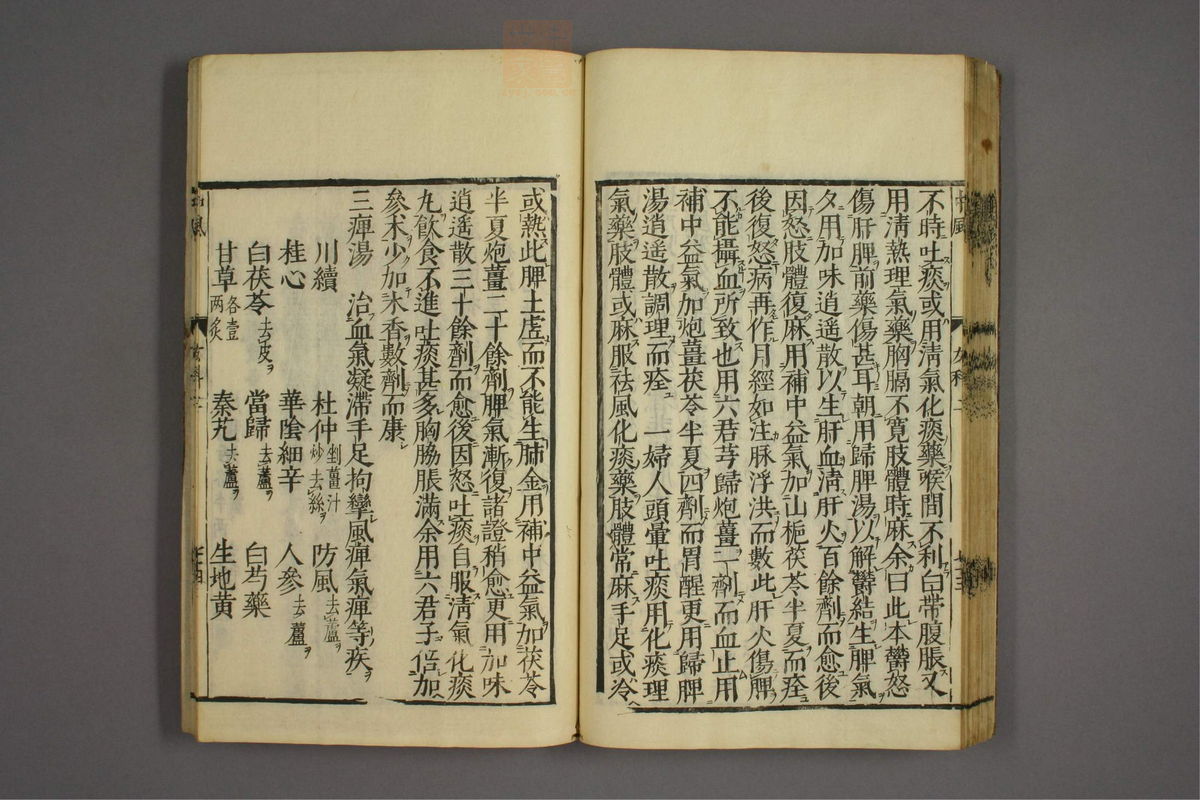 不時吐痰或用清氣化痰藥喉間不利白帶腹脹又
用清熱理氣藥胸膈不寛肢體時麻余曰此本欝怒
傷肝脾前藥傷甚耳朝用歸脾湯以解欝結生脾氣
夕用加味逍遥散以生肝血清肝火百餘劑而愈後
因怒肢體復麻用補中益氣加山梔茯苓半夏而痊
後復怒病再作月經如注脉浮洪而數此肝火傷脾
不能攝血所致也用六君芎歸炮薑一劑而血止用
補中益氣加炮薑茯苓半夏四劑而胃醒更用歸脾
湯逍遥散調理而痊 一婦人頭暈吐痰用化痰理
氣藥肢體或麻服祛風化痰藥肢體常麻手足或冷
或熱此脾土虚而不能生肺金用補中益氣加茯苓
半夏炮薑二十餘劑脾氣漸復諸證稍愈更用加味
逍遥散三十餘劑而愈後因怒吐痰自服清氣化痰
丸飲食不進吐痰甚多胸脇脹滿余用六君子倍加
參术少加木香數劑而康
三痺湯 治血氣凝滯手足拘攣風痺氣痺等疾
川續 杜仲剉薑汁炒去絲ヲ 防風去蘆ヲ
桂心 華陰細辛 人參去蘆ヲ
白茯苓去皮ヲ 當歸去蘆ヲ 白芍藥
甘草各壹两炙 秦艽去蘆ヲ 生地黄
中風